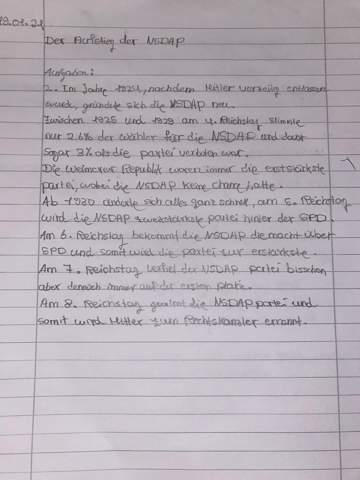 19.01.21
Der Aufstieg der NSDAP
Aufgaben:
2. Im Jahre 1924, nachdem Hitler vorzeitig entlassen
wurde, gründete sich die NSDAP neu.
Zwischen 1925 und 1929 am 4. Reichstag stimmte
nur 2,6% der Wähler für die NSDAP und davor
sogar 3% als die partei verboten war.
Die Weimarer Republik waren immer die erststärkste
partei, wobei die NSDAP keine chance hatte.
Ab 1930 änderte sich alles ganz schnell, am 5. Reichstag
wird die NSDAP zweitstärkste partei hinter der SPD.
Am 6. Reichstag bekommt die NSDAP die macht über
SPD und somit wird die partei zur erststärkste.
Am 7. Reichstag verlief der NSDAP partei bisschen
aber dennoch immer auf der ersten platz.
Am 8. Reichstag gewinnt die NSDAP partei und
somit wird Hitler zum Reichskanzler ernannt.